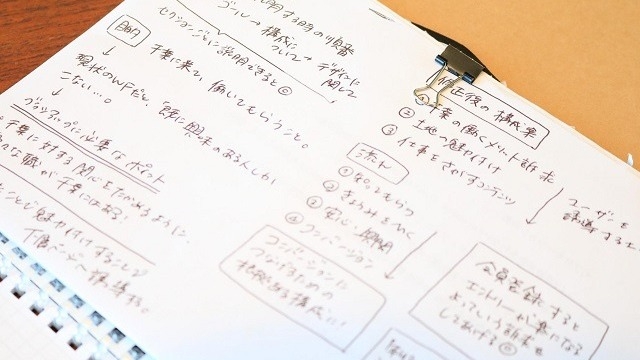 説明する時の順番
ゴール→構成に
ついて→デザインに
関して
セクションごとに説明できると◎
目的
↓
千葉に来て、働いてもらうこと。
現状のWFだと、「既に興味のある人しか
こない…。
↓
ブラッシュアップに必要なポイント
千葉に対する関心をたかめるように、
な職が千葉にはある
ことで魅力づけすることで
下層ページへ誘導する。
修正後の構成案
①千葉の働くメリット訴求
②土地の魅力づけ
③仕事をさがすコンテンツ
流れ
①知ってもらう
②きょうみをひく
③安心・期待
④コンバージョン
コンバージョンに
つなげるための
構成に!
ユーザーを
誘導する
会員登録すると
エントリーが楽になる
よっていう訴求も
してあげる◎